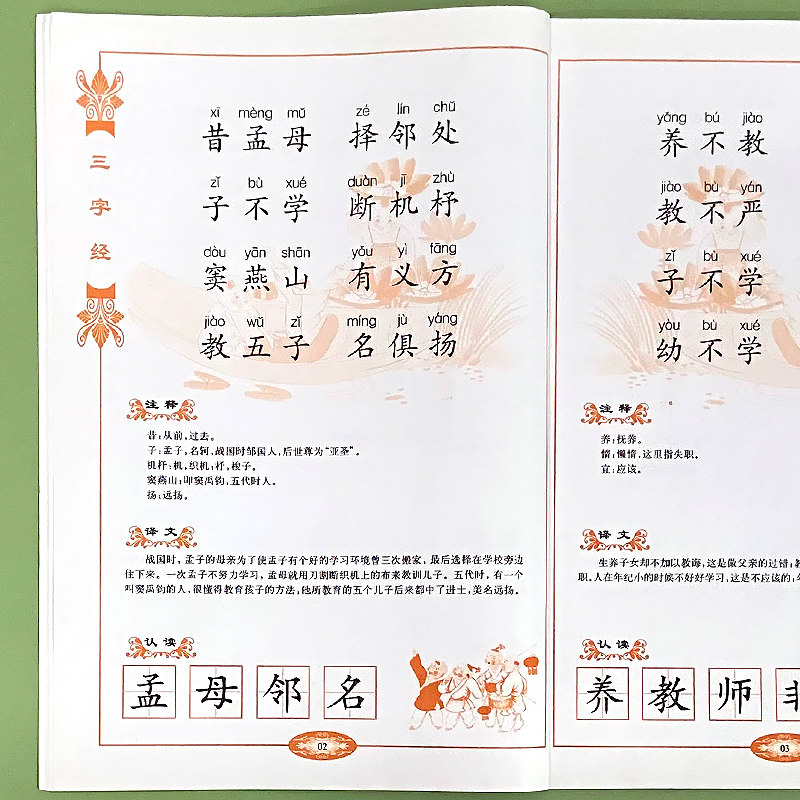 三字经
xī mèng mǔ zé lín chǔ
昔孟母 择邻处
zǐ bù xué duàn jī zhù
子不学 断机杼
dòu yān shān yǒu yì fāng
窦燕山 有义方
jiào wǔ zǐ míng jù yáng
教五子 名俱扬
注释
昔:从前,过去。
子:孟子,名轲,战国时邹国人,后世尊为“亚圣”。
机杼:机,织机;杼,梭子。
窦燕山:即窦禹钧,五代时人。
扬:远扬。
译文
战国时,孟子的母亲为了使孟子有个好的学习环境曾三次搬家,最后选择在学校旁边
住下来。一次孟子不努力学习,孟母就用刀割断织机上的布来教训儿子。五代时,有一个
叫窦禹钧的人,很懂得教育孩子的方法,他所教育的五个儿子后来都中了进士,美名远扬。
认读
孟母邻名
02
yǎng bú jiào
养不教
jiào bù yán
教不严
zǐ bù xué
子不学
yòu bù xué
幼不学
注释
养:抚养。
惰:懒惰,这里指失职。
宜:应该。
译文
生养子女却不加以教诲,这是做父亲的过错;教
职。人在年纪小的时候不好好学习,这是不应该的,
认读
养教师
03